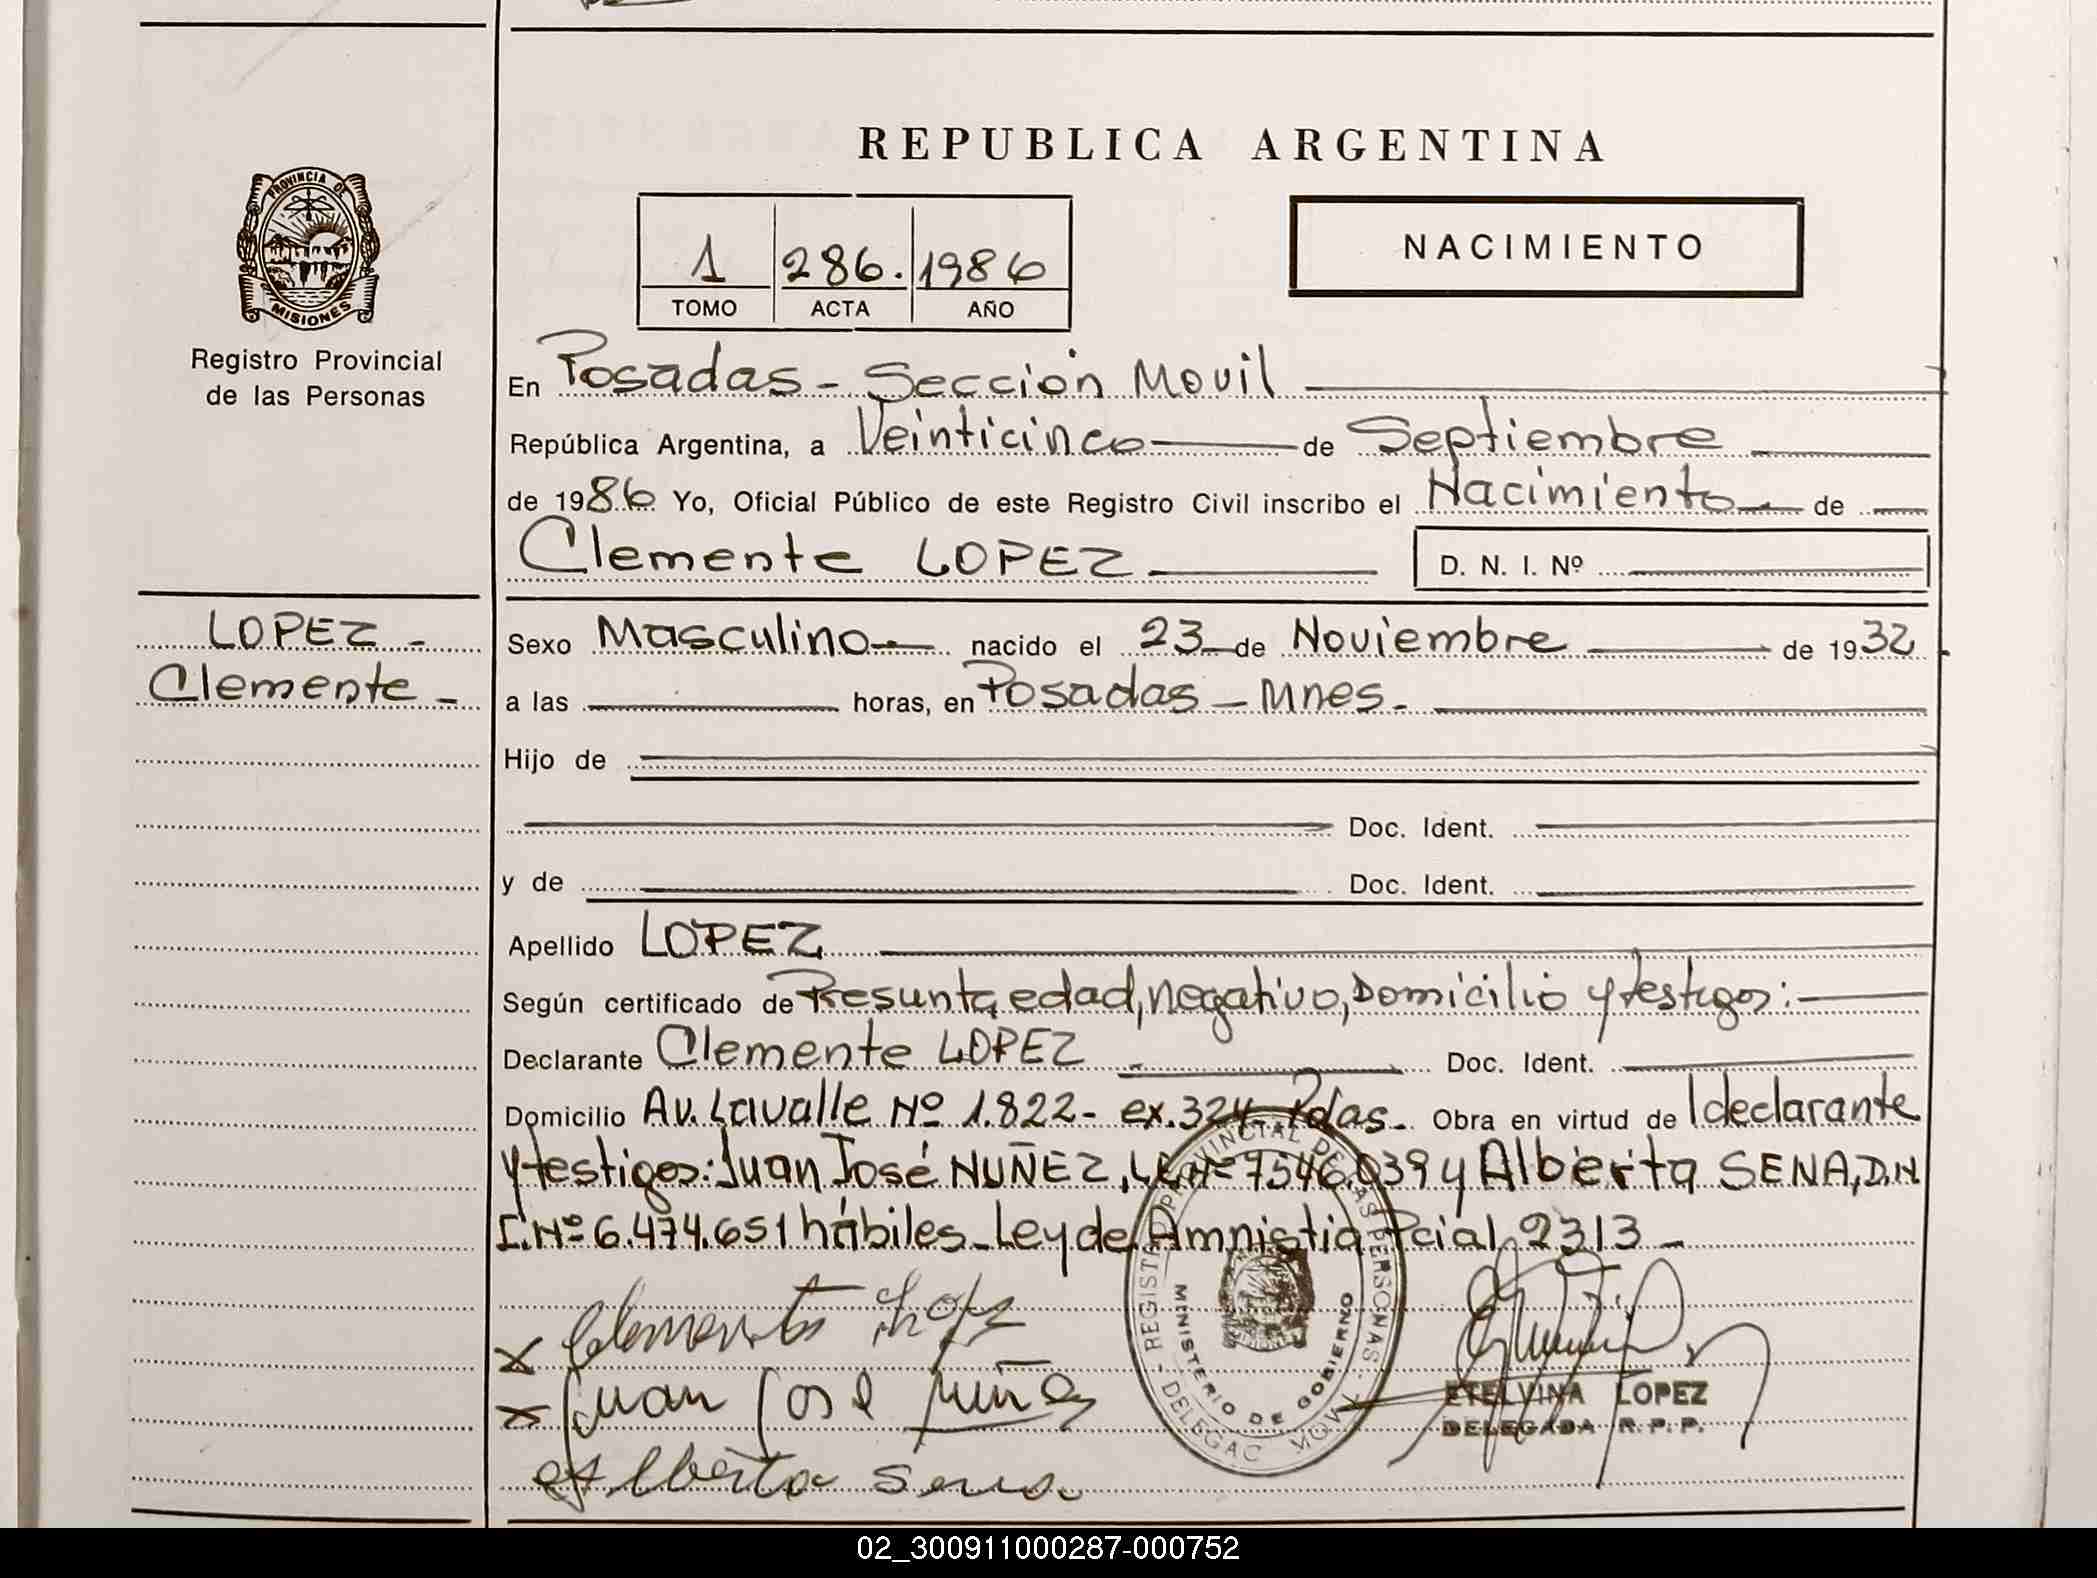 REPUBLICA ARGENTINA
PROVINCIA DE
MISIONES
Registro Provincial
de las Personas
1 286. 1986
TOMO ACTA AÑO
NACIMIENTO
En Posadas - Sección Movil
República Argentina, a Veinticinco de Septiembre
de 1986 Yo, Oficial Público de este Registro Civil inscribo el Nacimiento de
Clemente LOPEZ
D. N. I. Nº
LOPEZ -
Clemente -
Sexo Masculino nacido el 23 de Noviembre de 1932
a las horas, en Posadas - Mnes.
Hijo de
Doc. Ident.
y de Doc. Ident.
Apellido LOPEZ
Según certificado de Presunta edad, negativo, Domicilio y testigos:
Declarante Clemente LOPEZ Doc. Ident.
Domicilio Av. Lavalle Nº 1.822 - ex. 324 Pdas. Obra en virtud de l declarante
y testigos: Juan José NUÑEZ, L.E.Nº 7546.039 y Alberta SENA, D.N.
I. Nº 6.474.651 hábiles - Ley de Amnistia Pcial 2313 -
REGISTRO PROVINCIAL DE LAS PERSONAS
MINISTERIO DE GOBIERNO
DELEGAC MOV
x Clemente Lopez
x Juan José Nuñez
Alberta Sena.
ETELVINA LOPEZ
DELEGADA R.P.P.
02_300911000287-000752